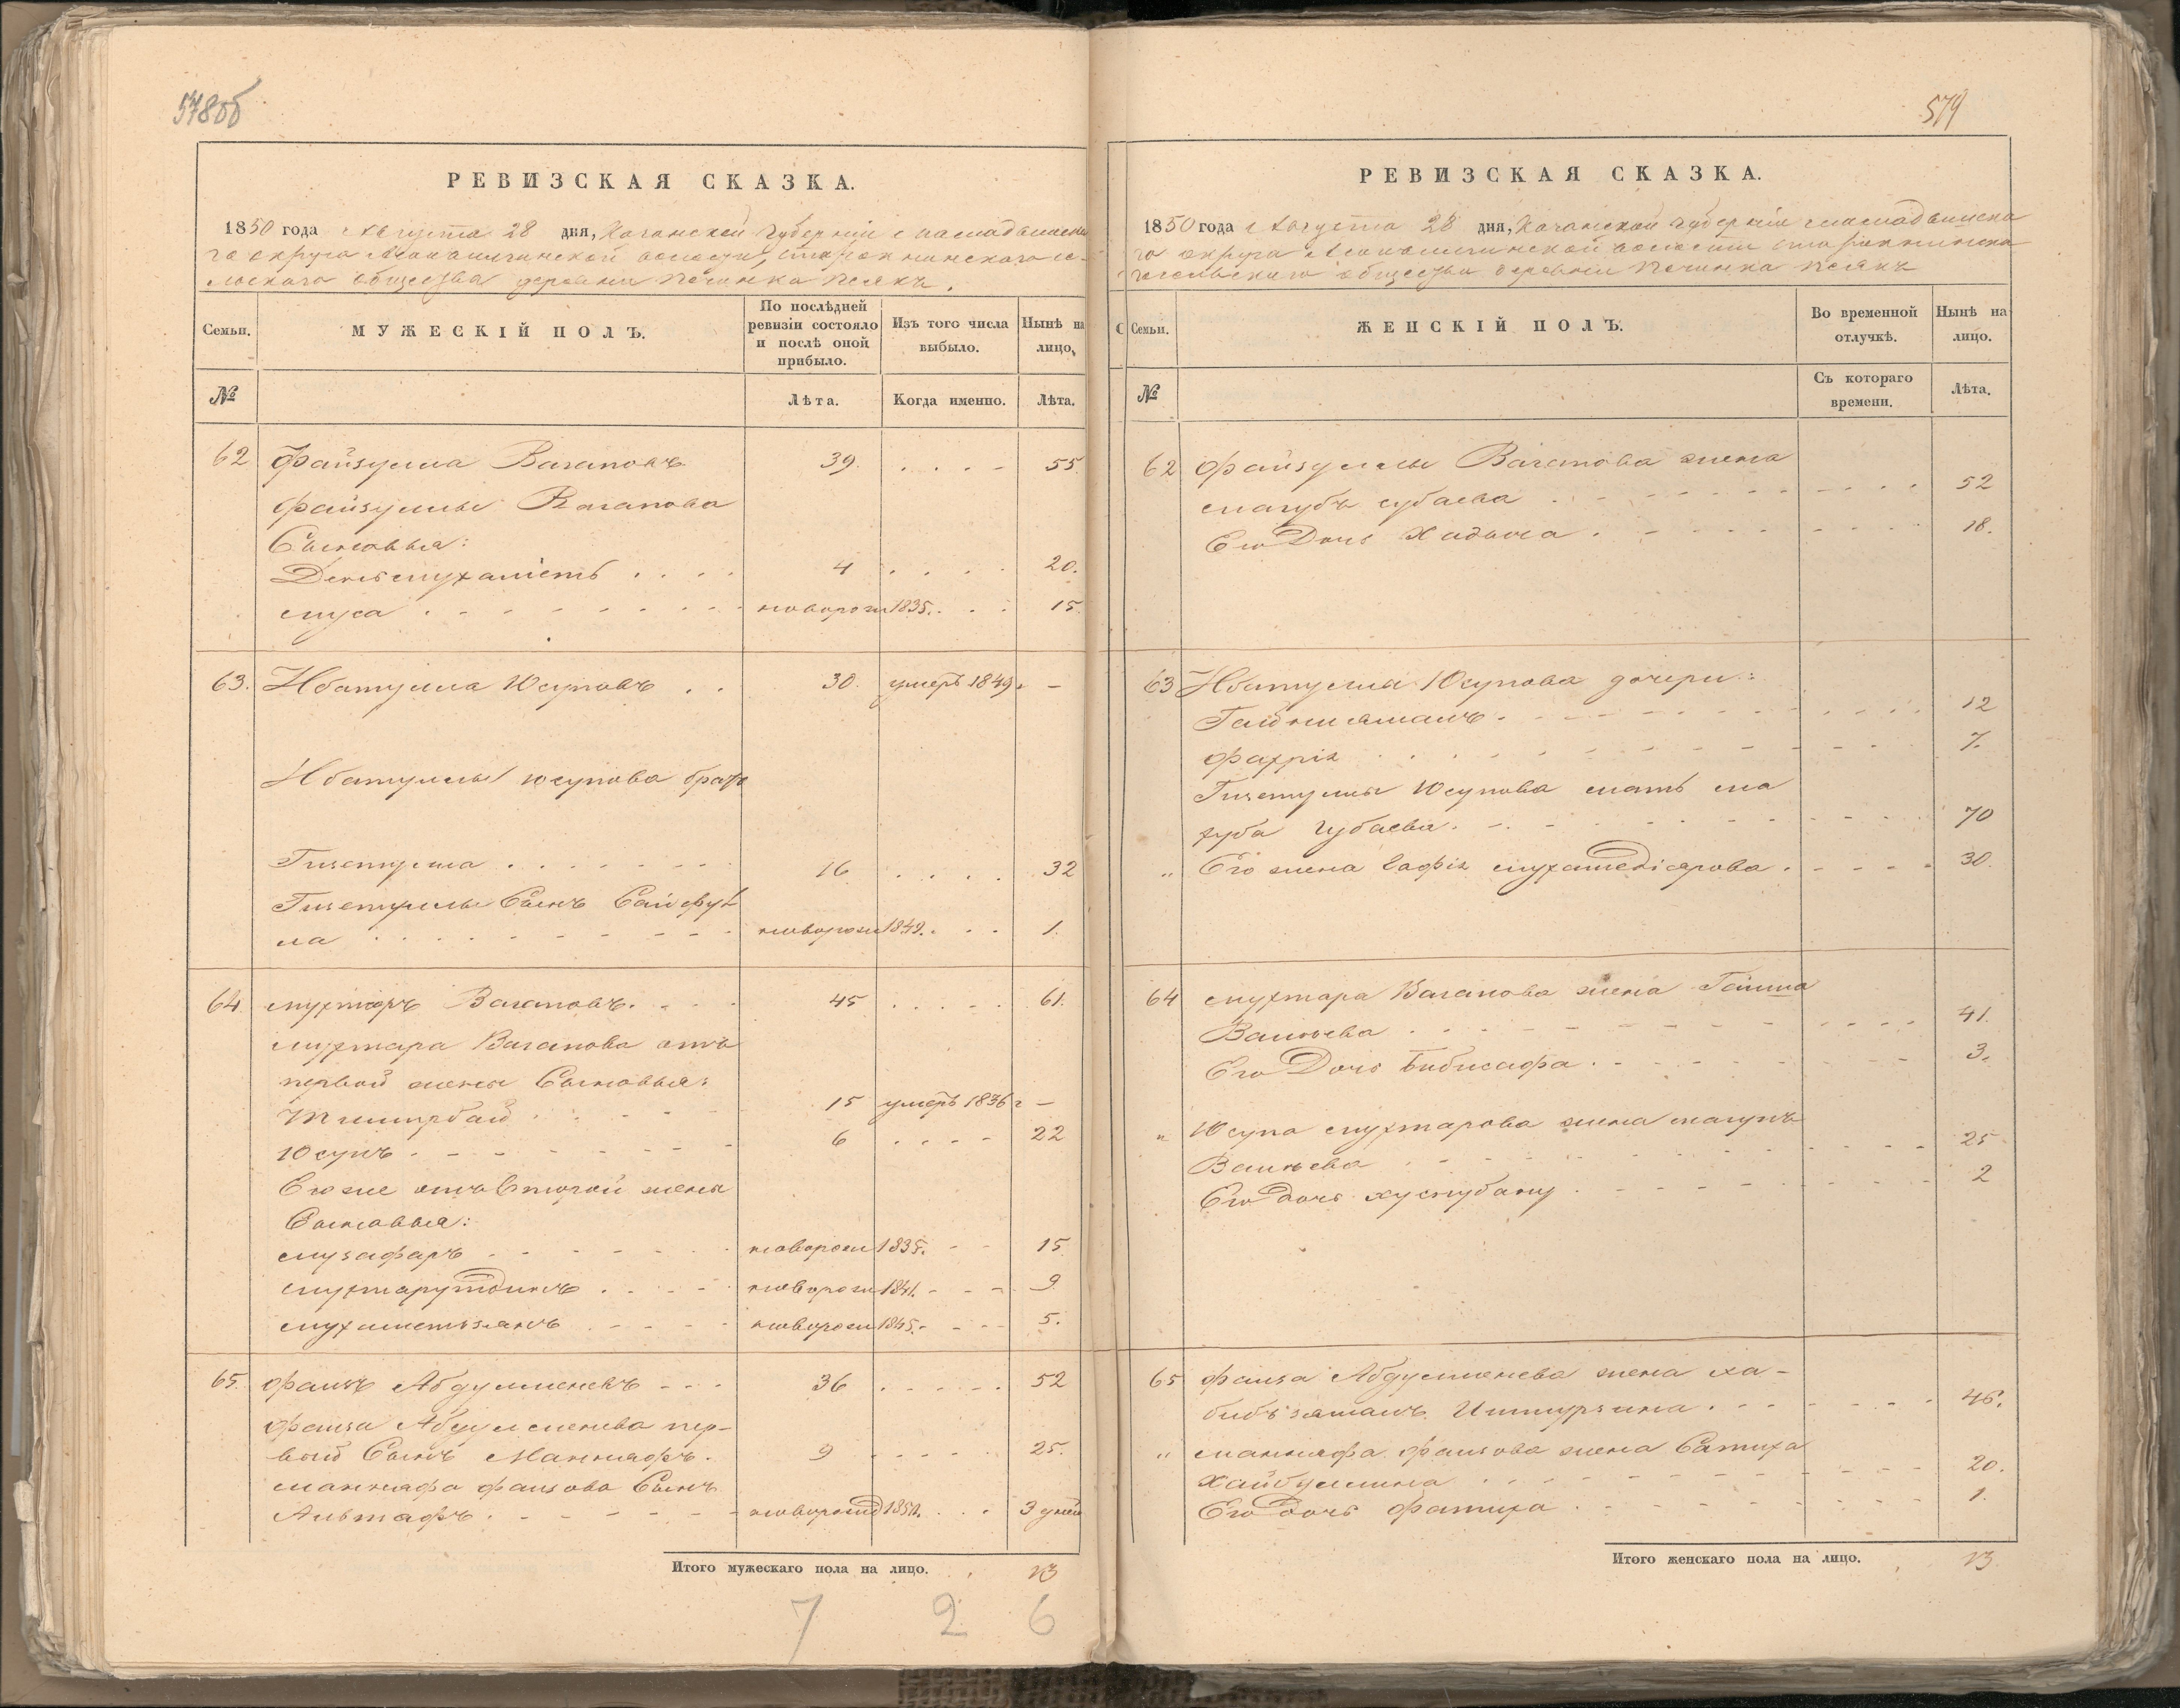 578об
РЕВИЗСКАЯ СКАЗКА.
1850 года Августа 28 дня, Казанской Губерніи Мамадышска
го округа волости,
общества деревни Починка
Семьи.
МУЖЕСКІЙ ПОЛЪ.
По послѣдней ревизіи состояло и послѣ оной прибыло.
Изъ того числа выбыло.
Нынѣ на лицо,
№
Лѣта.
Когда именно.
Лѣта.
62 Файзулла Вагаповъ 39. 55.
Файзуллы Вагапова
Сыновья:
Деньмухаметь 4 20.
Муса новорож 1835. 15.
63. Ибатулла Юсуповъ 30. умеръ 1849 –
Ибатуллы Юсупова братъ
Гизетулла 16 32
Гизетуллы Сынъ Сайфул
ла новорож 1849. 1.
64. Мухтаръ Вагаповъ. 45 61.
Мухтара Вагапова отъ
первой жены Сыновья:
Тимирбай 15 умеръ 1836 г –
Юсупъ 6 22
Его же отъ второй жены
Сыновья:
Музафаръ новорож 1835. 15
Мухтарутдинъ новорож 1841. 9
Мухаметьзянъ новорож 1845. 5.
65. Фаизъ Абдулменевъ 36 52
Фаиза Абдулменева пер-
вый Сынъ Маннафъ. 9 25.
Маннафа Фаизова Сынъ
Альтафъ новорожд 1850. 3 дней
Итого мужескаго пола на лицо. 13
7 2 6
579
РЕВИЗСКАЯ СКАЗКА.
1850 года Августа 28 дня, Казанской Губерніи Мамадышска
го округа волости
сельскаго общества деревни Починка
Семьи.
ЖЕНСКІЙ ПОЛЪ.
Во временной отлучкѣ.
Нынѣ на лицо.
№
Съ котораго времени.
Лѣта.
62 Файзуллы Вагапова жена
Магубъ Субаева 52
Его Дочь Хадыча 18.
63 Ибатуллы Юсупова дочери:
Гайнизяманъ 12
Фахрія 7.
Гизетуллы Юсупова мать Ма
губа Губаева. 70
„ Его жена Сафія Мухамедіярова 30.
64 Мухтара Вагапова жена Гайша
Валиева 41.
Его Дочь Бибисафа. 3.
„ Юсупа Мухтарова жена
Валиева 25
Его дочь Хуснубану 2
65 Фаиза Абдулменева жена Ха-
бибъзяманъ 46.
„ Маннафа Фаизова жена Сатиха
Хайбуллина 20.
Его дочь Фатиха 1.
Итого женскаго пола на лицо. 13.